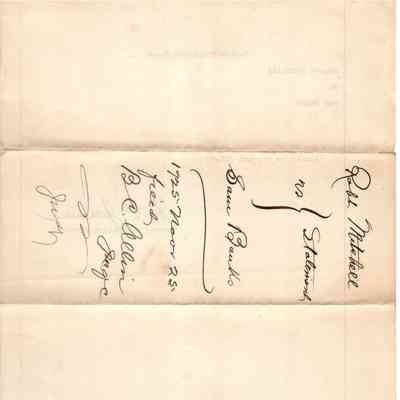 Robt. Mitchell
vs } Statement
Sam Banks
1925 Nov 25.
filed
B. C. Allin
Judge